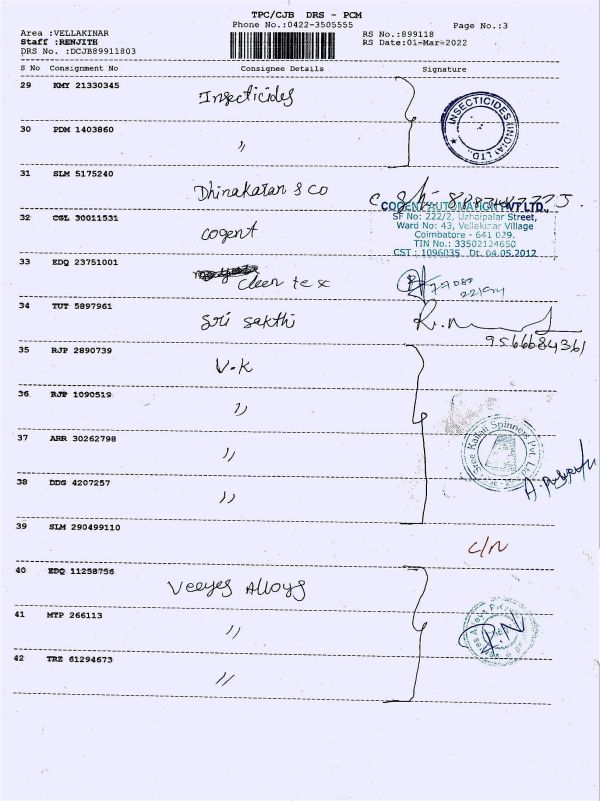 TPC/CJB DRS - PCM
Phone No.:0422-3505555
Page No.:3
Area :VELLAKINAR
RS No.:899118
Staff :RENJITH
RS Date:01-Mar-2022
DRS No. :DCJB89911803
S No Consignment No Consignee Details Signature
29 KMY 21330345 Insecticides
INSECTICIDES (INDIA) LTD.
30 PDM 1403860 "
31 SLM 5175240 Dhinakaran & co
COGENT AUTOMATION PVT LTD.,
SF No: 222/2, Uzhaipalar Street,
Ward No: 43, Vellakinar Village
Coimbatore - 641 029.
TIN No.: 33502124650
CST : 1096035 Dt. 04.05.2012
32 CGL 30011531 cogent
33 EDQ 23751001 Cleen tex
34 TUT 5897961 Sri Sakthi
9566684361
35 RJP 2890739 V.K
36 RJP 1090519 "
37 ARR 30262798 "
Sree Kallaji Spinners Pvt. Ltd
38 DDG 4207257 "
39 SLM 290499110 C/N
40 EDQ 11258756 Veeyes Alloys
41 MTP 266113 "
42 TRZ 61294673 "